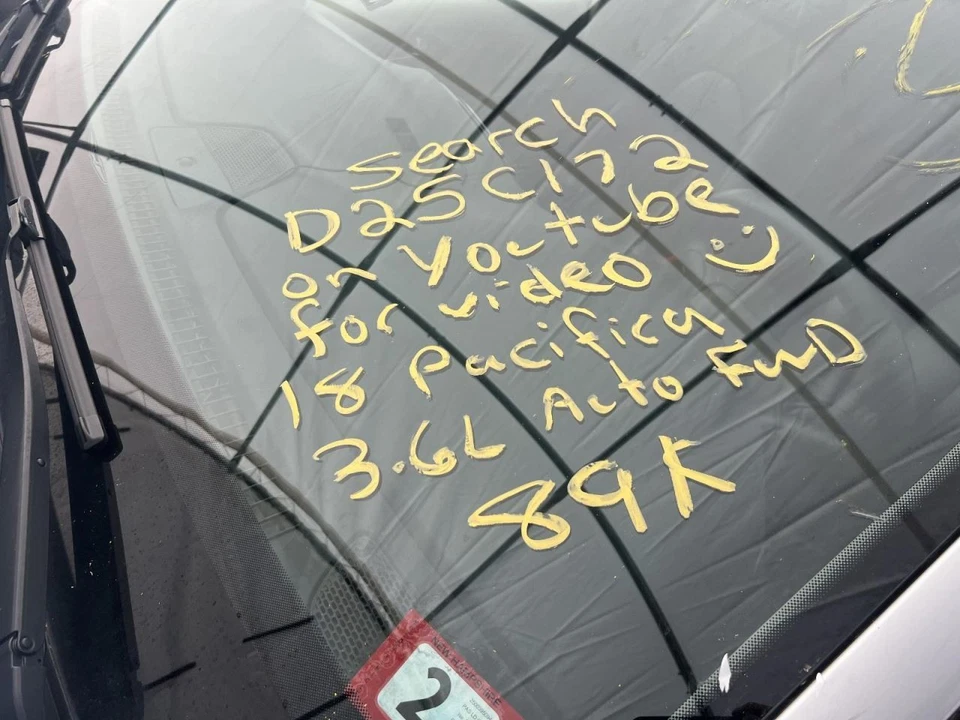 Search
D25C172
on Youtube
for video :)
18 Pacifica
3.6L Auto FWD
89K
2